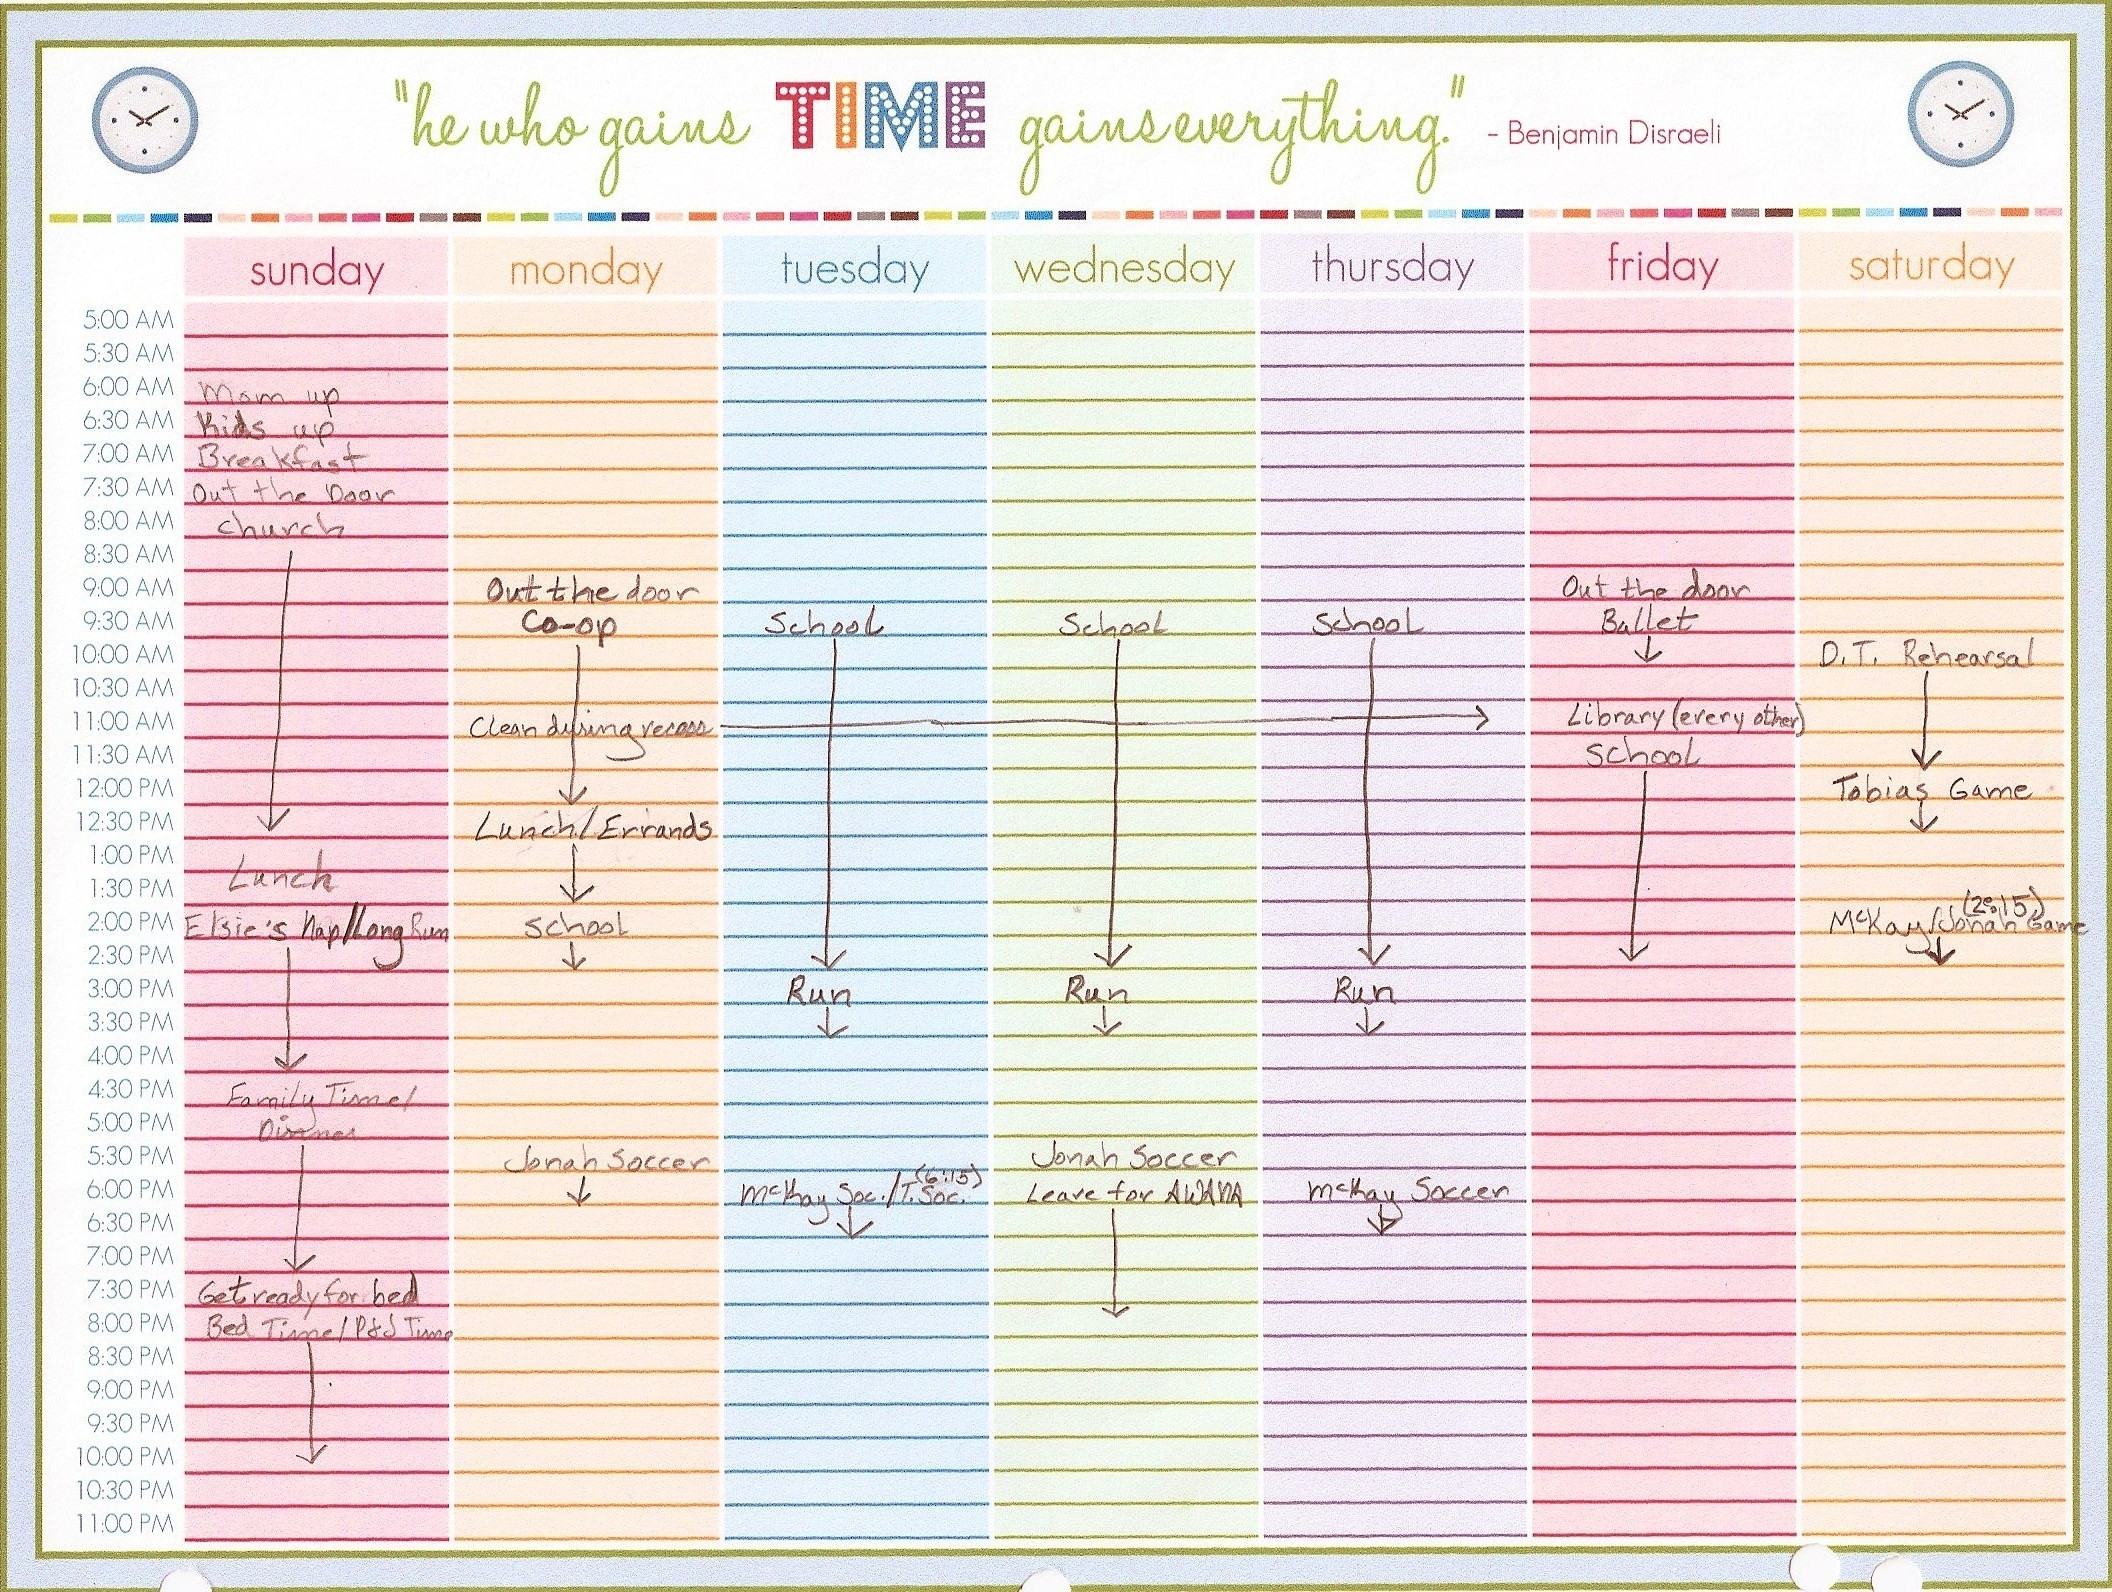 "he who gains TIME gains everything." - Benjamin Disraeli
sunday monday tuesday wednesday thursday friday saturday
5:00 AM
5:30 AM
6:00 AM Mom up
6:30 AM Kids up
7:00 AM Breakfast
7:30 AM Out the Door
8:00 AM church
8:30 AM
9:00 AM Out the door Out the door
9:30 AM Co-op School School School Ballet
10:00 AM D.T. Rehearsal
10:30 AM
11:00 AM Clean during recess Library (every other)
11:30 AM School
12:00 PM Tobias Game
12:30 PM Lunch/Errands
1:00 PM
Lunch
1:30 PM
(2:15)
2:00 PM Elsie's Nap/Long Run School McKay/Jonah Game
2:30 PM
3:00 PM Run Run Run
3:30 PM
4:00 PM
4:30 PM Family Time/
5:00 PM Dinner
5:30 PM Jonah Soccer Jonah Soccer
(6:15)
6:00 PM McKay Soc./T. Soc. Leave for AWANA McKay Soccer
6:30 PM
7:00 PM
7:30 PM Get ready for bed
8:00 PM Bed Time/P&J Time
8:30 PM
9:00 PM
9:30 PM
10:00 PM
10:30 PM
11:00 PM